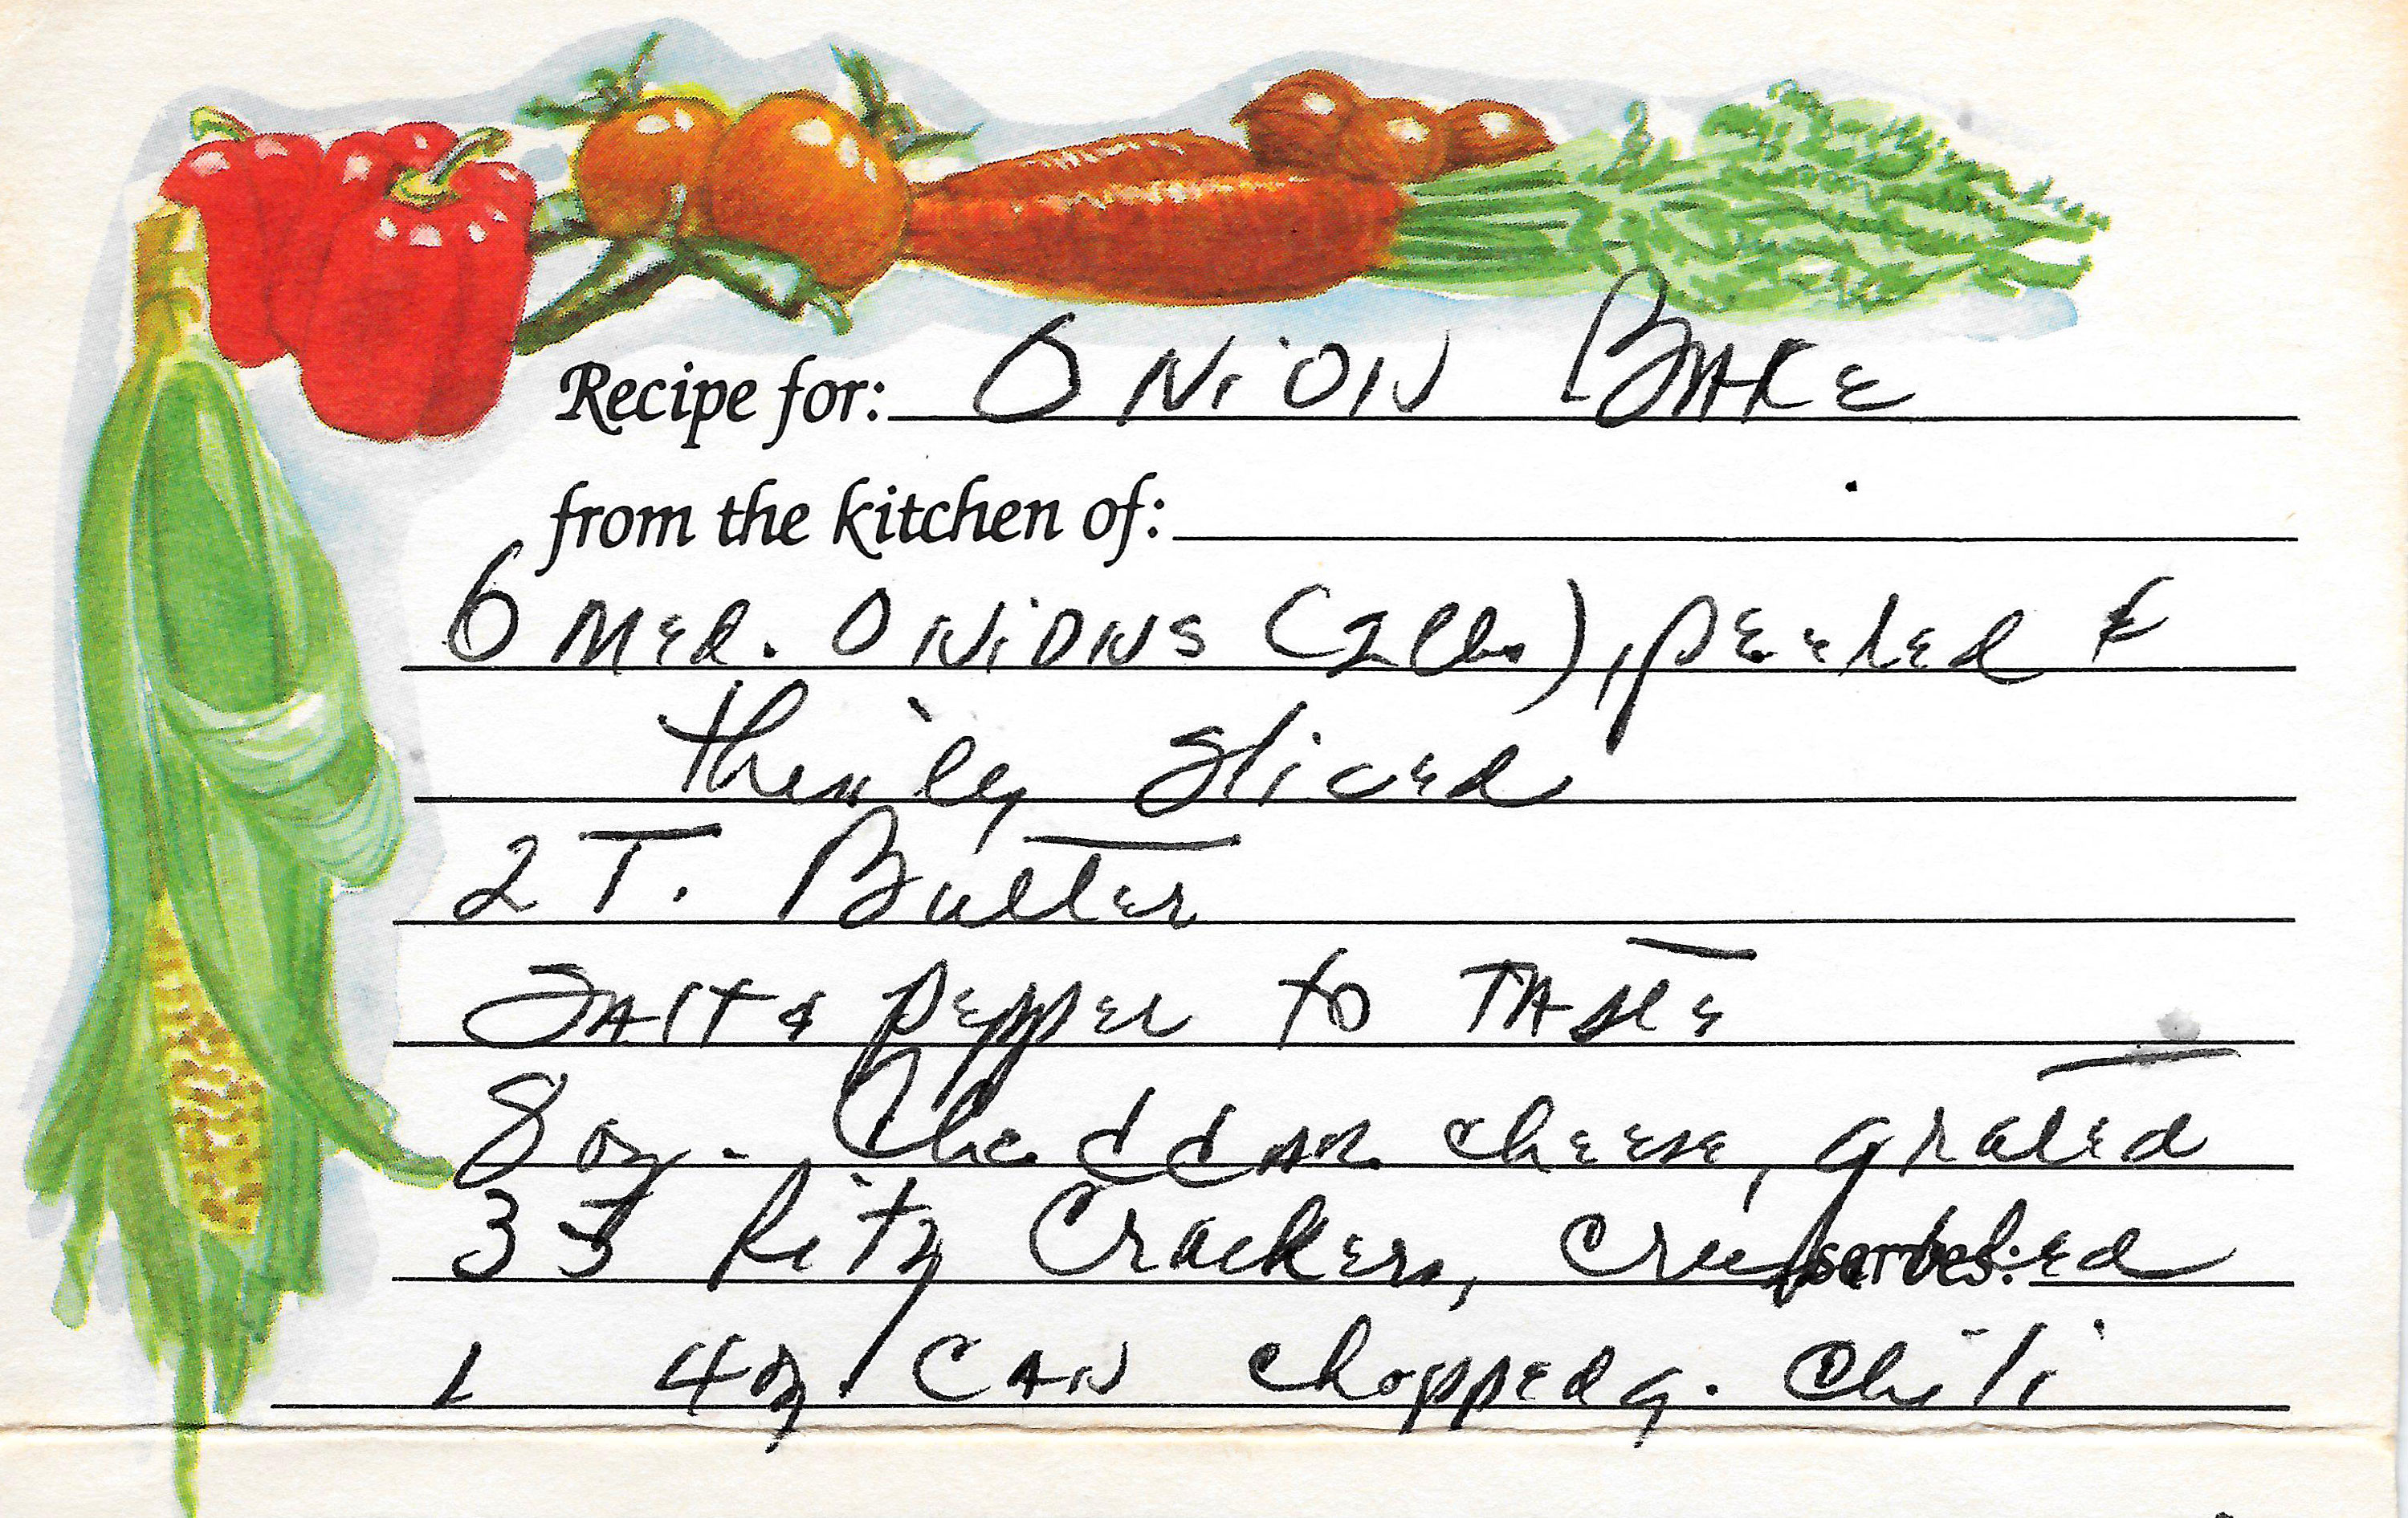 Recipe for: ONION BAKE
from the kitchen of:
6 Med. ONIONS (2 lbs), peeled &
thinly sliced
2 T. Butter
SALT & pepper to TASTE
8 oz. Cheddar cheese, grated
35 Ritz Crackers, crushed
serves:
1 4 oz. CAN chopped g. Chili